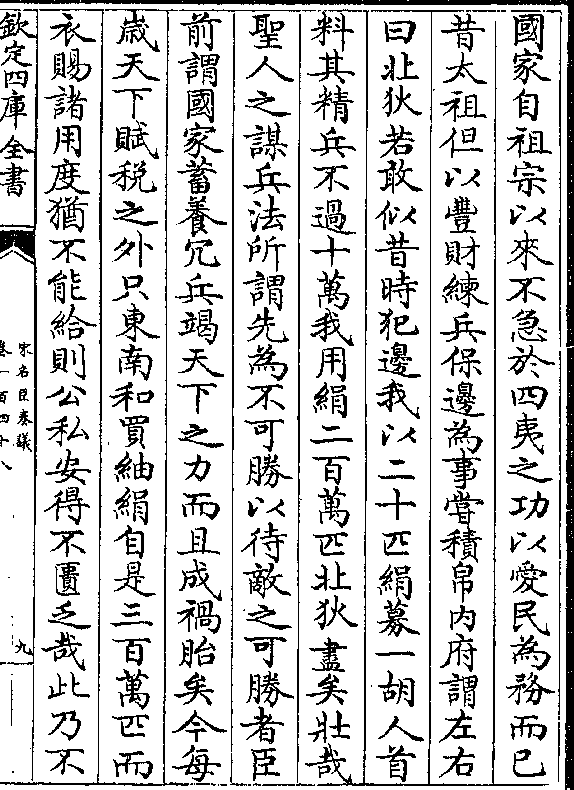 國家自祖宗以來不急於四夷之功以愛民為務而已
昔太祖但以豐財練兵保邊為事嘗積帛内府謂左右
曰北狄若敢似昔時犯邊我以二十匹絹募一胡人首
料其精兵不過十萬我用絹二百萬匹北狄盡矣壯哉
聖人之謀兵法所謂先為不可勝以待敵之可勝者臣
前謂國家蓄養冗兵竭天下之力而且成禍胎矣今每
歳天下賦税之外只東南和買紬絹自是三百萬匹而
衣賜諸用度猶不能給則公私安得不匱乏哉此乃不
欽定四庫全書
宋名臣奏議
卷一百四十八
九